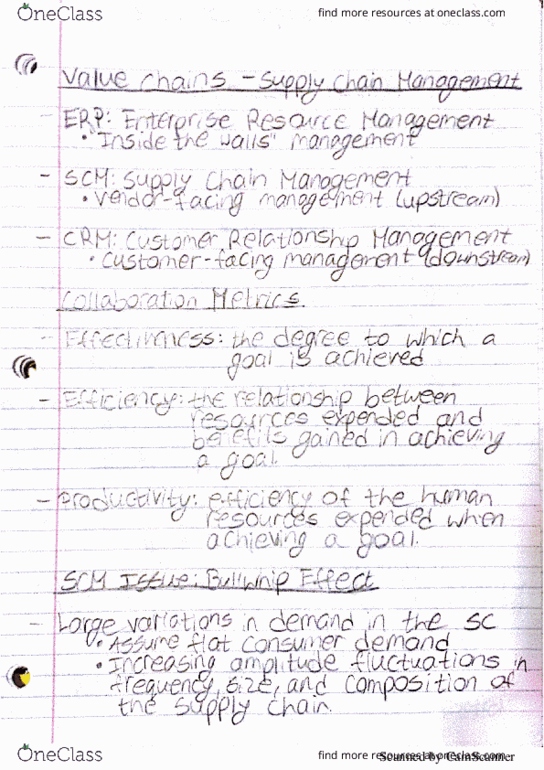 OneClass
find more resources at oneclass.com
Value Chains - Supply Chain Management
- ERP: Enterprise Resource Management
• "Inside the walls" management
- SCM: Supply Chain Management
• Vendor-facing management (upstream)
- CRM: Customer Relationship Management
• Customer-facing management (downstream)
Collaboration Metrics.
- Effectiveness: the degree to which a
goal is achieved
- Efficiency: the relationship between
resources expended and
benefits gained in achieving
a goal.
- Productivity: efficiency of the human
resources expended when
achieving a goal.
SCM Issue: Bullwhip Effect
- Large variations in demand in the SC
• Assume flat consumer demand
• Increasing amplitude fluctuations in
frequency, size, and composition of
the supply chain.
OneClass
find more resources at oneclass.com
Scanned by CamScanner